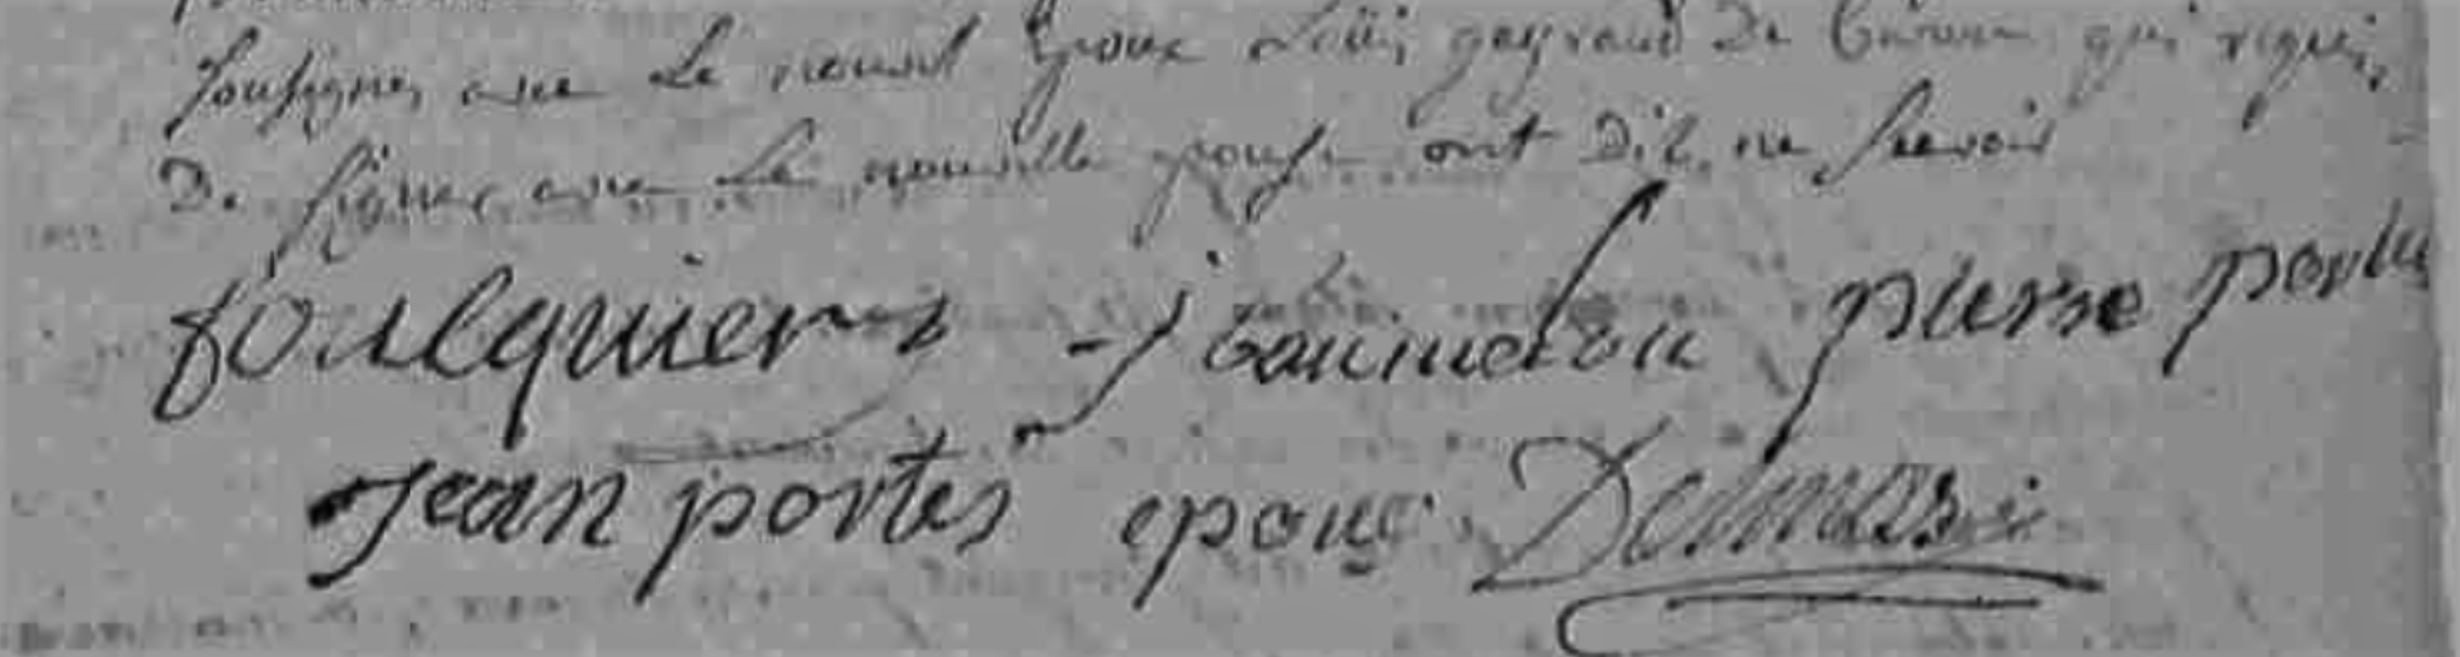 soussignes avec le nouvel Epoux Louis gayraud de qui requis
De signer avec La nouvelle epouse ont Dit ne scavoir
foulquier j pierre portes
Jean portes epoux Delmas